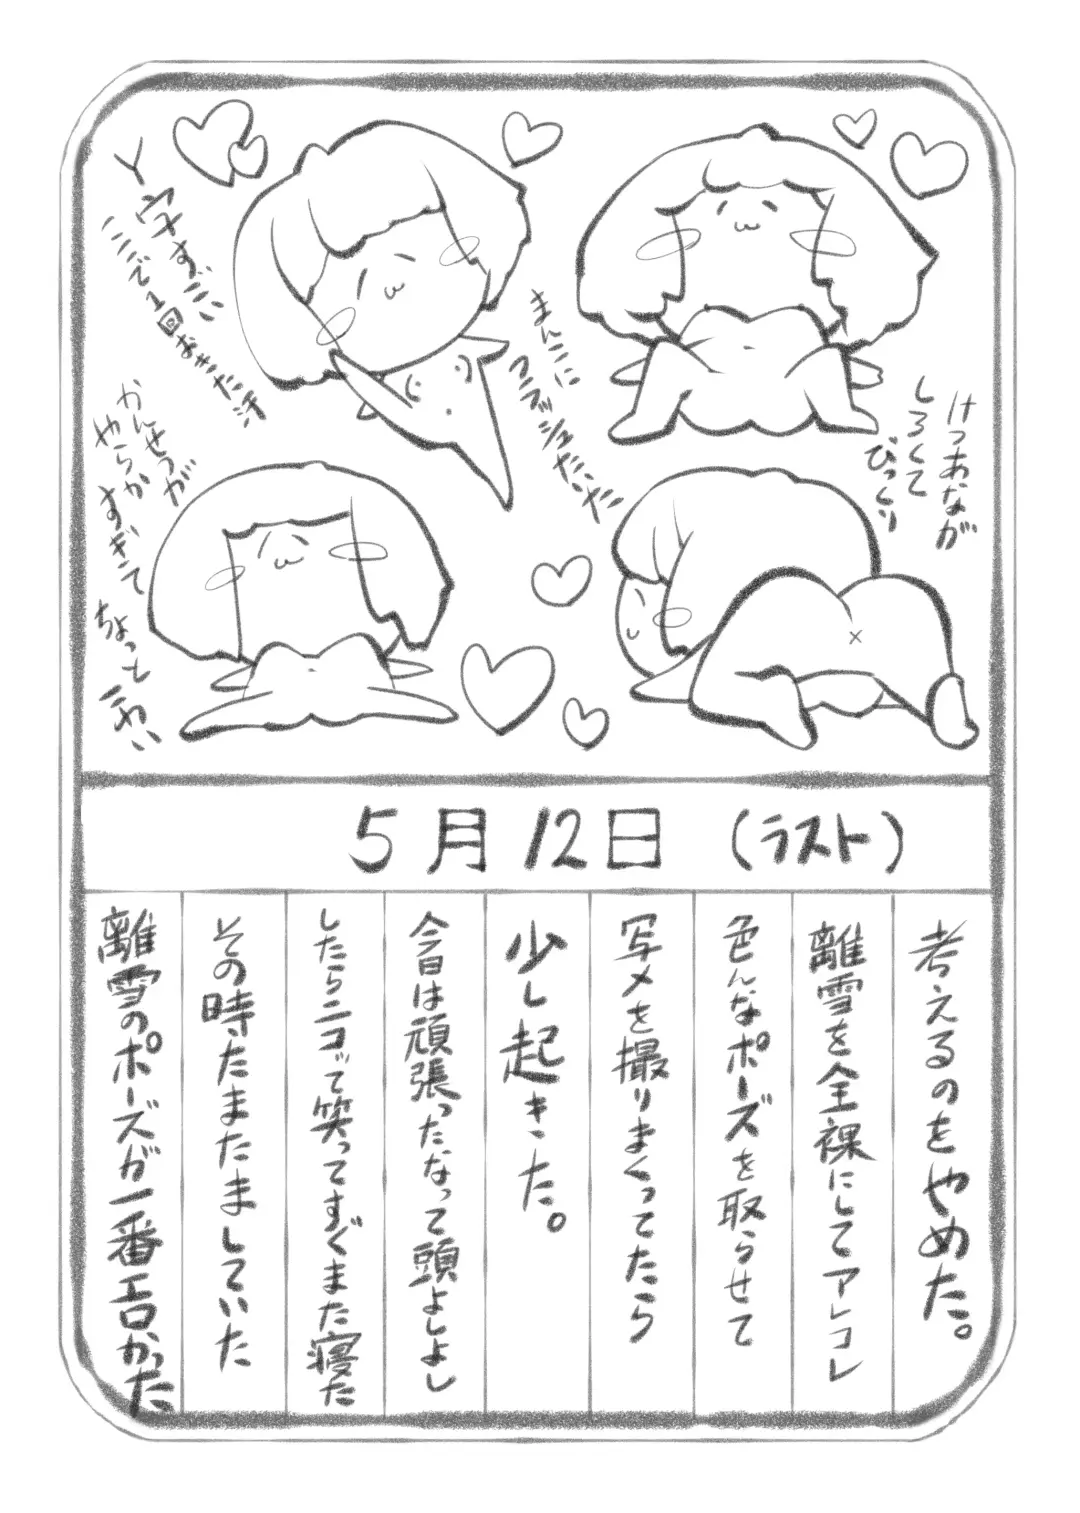 けつあなが
しろくて
びっくり
まんこに
フラッシュたいた
Y字すごい
ここで1回おきた汗
かんせつが
やらか
すぎて
ちょっと
こわい
5月12日 (ラスト)
考えるのをやめた。
離雪を全裸にしてアレコレ
色んなポーズを取らせて
写メを撮りまくってたら
少し起きた。
今日は頑張ったなって頭よしよし
したらニコッて笑ってすぐまた寝た
その時たまたましていた
離雪のポーズが一番エロかった